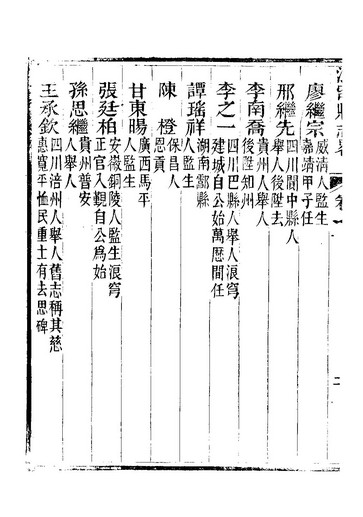 廖繼宗 威清人監生
嘉靖甲子任
邢繼先 四川閬中縣人
舉人後陞去
李南喬 貴州人舉人
後陞知州
李之一 四川巴縣人舉人浪穹
建城自公始萬歷間任
譚瑤祥 湖南酃縣
人監生
陳橙 保昌人
恩貢
甘東暘 廣西馬平
人監生
張廷柏 安徽銅陵人監生浪穹
正官入覲自公爲始
孫思繼 貴州普安
人舉人
王承欽 四川涪州人舉人舊志稱其慈
惠寬平恤民重士有去思碑
二